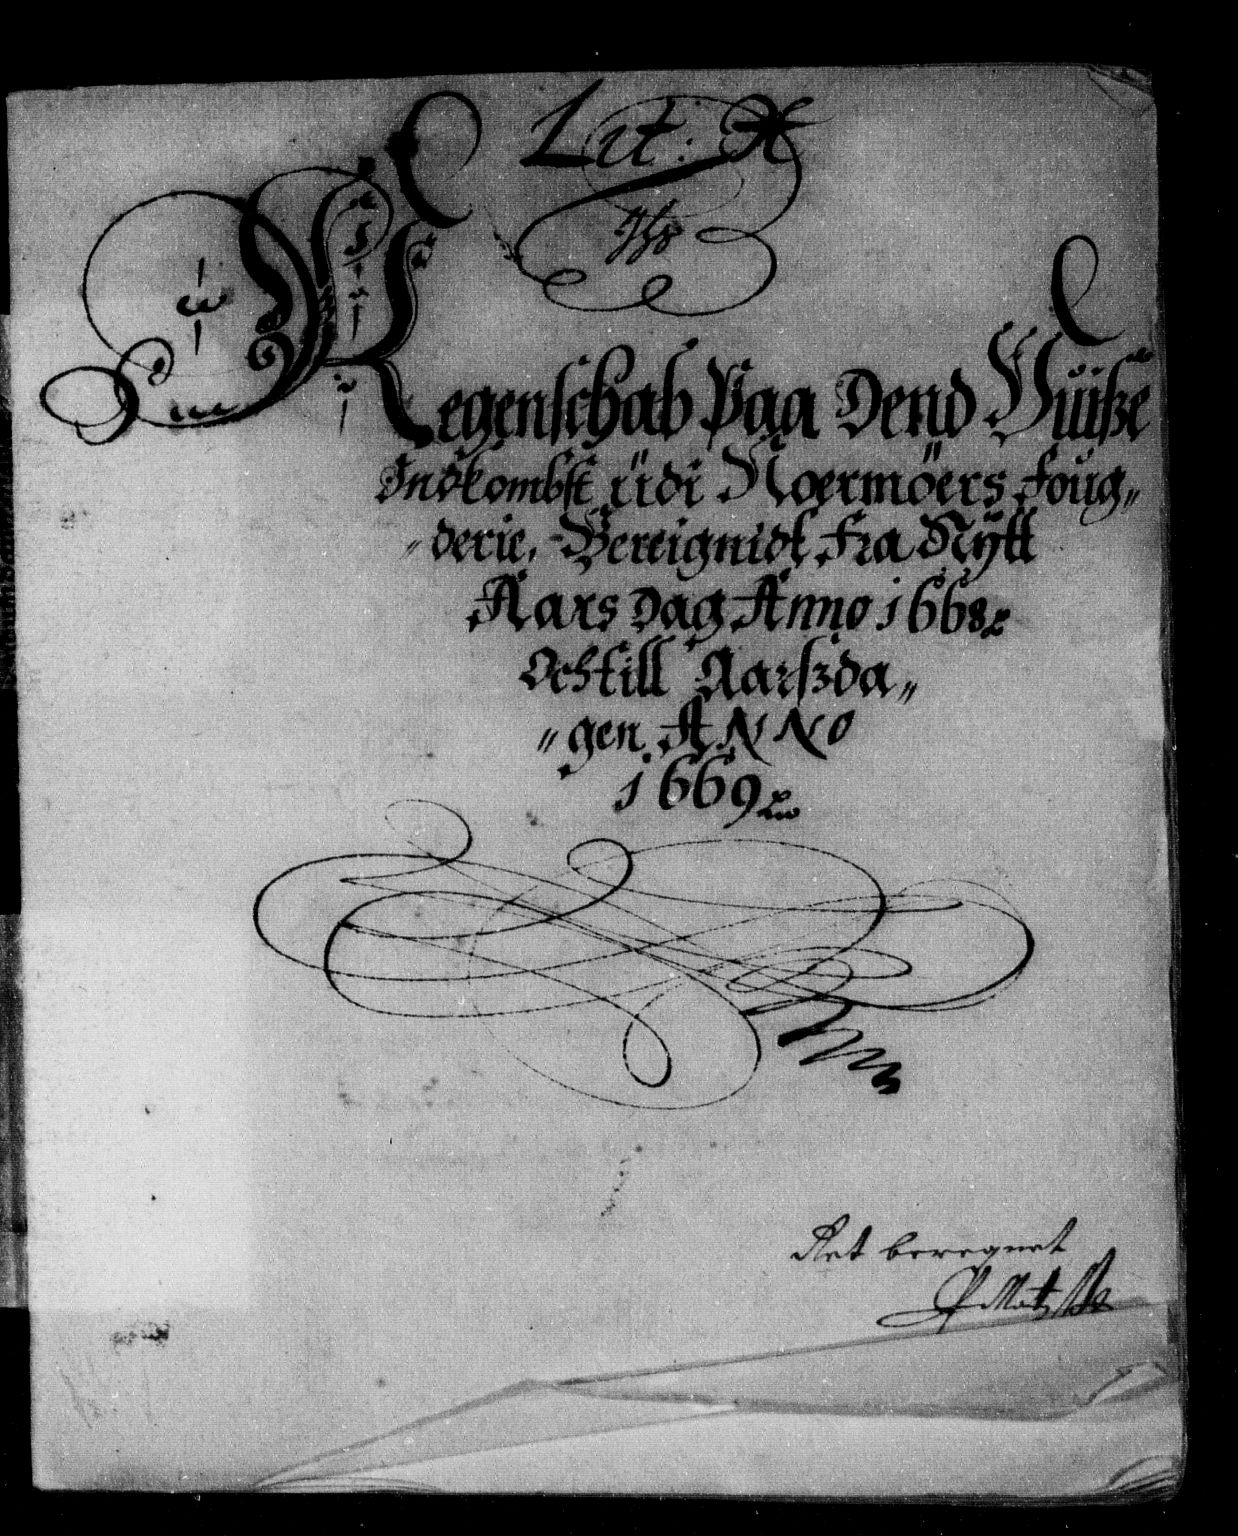 Lit:
Regenschab Paa Dend Vüiße
Indkombst üdi Noermöers Foug„
„derie, Bereignidt Fra Nÿtt
Aars Dag Anno 1668
Och till Aarßda„
„gen ANNO
1669
Ret beregnet